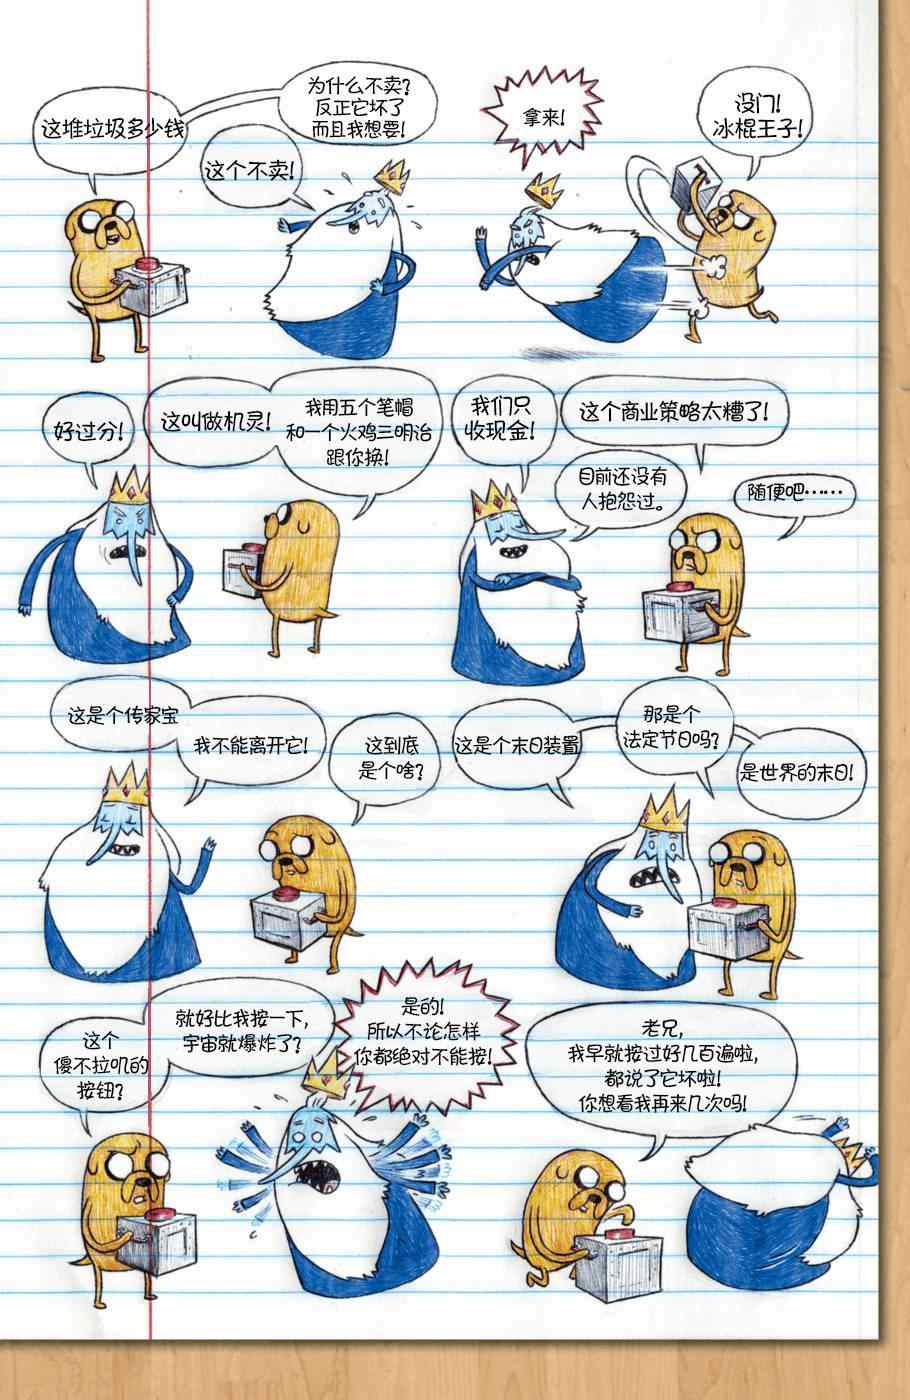 这堆垃圾多少钱
这个不卖!
为什么不卖?
反正它坏了
而且我想要!
拿来!
没门!
冰棍王子!
好过分!
这叫做机灵!
我用五个笔帽
和一个火鸡三明治
跟你换!
我们只
收现金!
这个商业策略太糟了!
目前还没有
人抱怨过。
随便吧……
这是个传家宝
我不能离开它!
这到底
是个啥?
这是个末日装置
那是个
法定节日吗?
是世界的末日!
这个
傻不拉叽的
按钮?
就好比我按一下,
宇宙就爆炸了?
是的!
所以不论怎样
你都绝对不能按!
老兄,
我早就按过好几百遍啦,
都说了它坏啦!
你想看我再来几次吗!